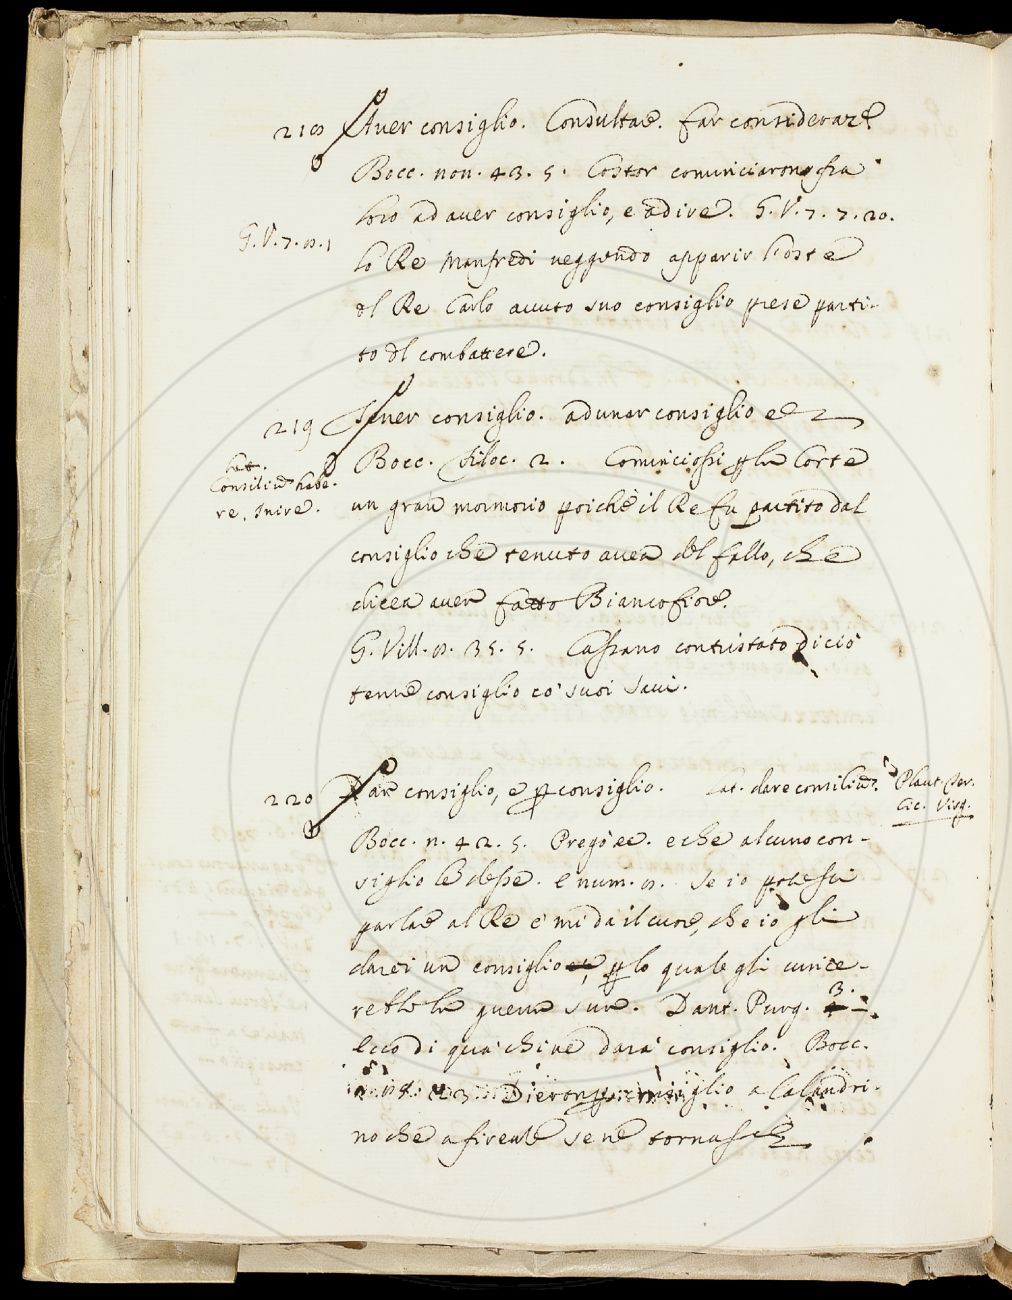 218 Auer consiglio. Consultare. far considerare
Bocc. nou. 43. 5. Costor cominciarono fra
loro ad auer consiglio, e a dire. G. V. 7. 7. 20.
G. V. 7. 8. 1
lo Re Manfredi ueggendo apparir l'oste
dl Re Carlo auuto suo consiglio prese parti-
to dl combattere.
219 Tener consiglio. adunar consiglio
Consiliũ habe-
re, Inire.
Bocc. filoc. 2. Cominciossi p la Corte
un gran mormorio poichè il Re fu partito dal
consiglio che tenuto auea dl fallo, che
dicea auer fatto Biancofiore.
G. Vill. 8. 35. 5. Cassano contristato di ciò
tenne consiglio co' suoi saui.
220 Dar consiglio, e p consiglio. Lat. dare consiliũ. Plaut. Ter.
Cic. Virg.
Bocc. n. 42. 5. Pregò ec. e che alcuno con-
siglio le desse. e num. 8. Se io potessi
parlare al Re e' mi dà il cuore, che io gli
darei un consiglio, p lo quale gli uince-
rebbe la guerra sua. Dant. Purg. 3.
Ecco di qua chi ne darà consiglio. Bocc.
Dieron p consiglio a Calandri-
no che a firenze se ne tornasse